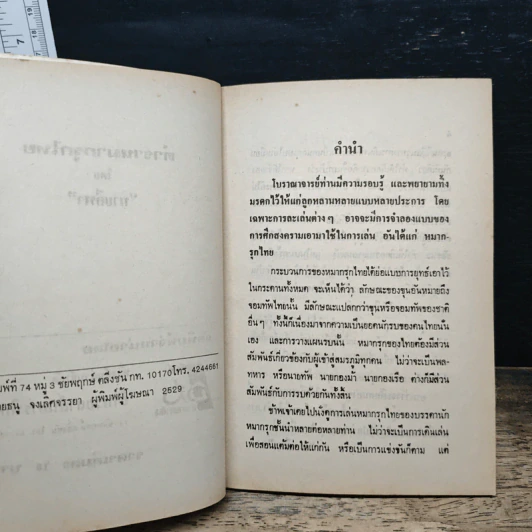 พิมพ์ที่ 74 หมู่ 3 ชัยพฤกษ์ ตลิ่งชัน กท. 10170 โทร. 4244661
ยธนู จงเลิศจรรยา ผู้พิมพ์ผู้โฆษณา 2529
คำนำ
โบราณาจารย์ท่านมีความรอบรู้ และพยายามทิ้ง
มรดกไว้ให้แก่ลูกหลานหลายแบบหลายประการ โดย
เฉพาะการละเล่นต่างๆ อาจจะมีการจำลองแบบของ
การศึกสงครามเอามาใช้ในการเล่น อันได้แก่ หมาก-
รุกไทย
กระบวนการของหมากรุกไทยได้ย่อแบบการยุทธ์เอาไว้
ในกระดานทั้งหมด จะเห็นได้ว่า ลักษณะของขุนอันหมายถึง
จอมทัพไทยนั้น มีลักษณะแปลกกว่าขุนหรือจอมทัพของชาติ
อื่นๆ ทั้งนี้ก็เนื่องมาจากความเป็นยอดนักรบของคนไทยนั้น
เอง และการวางแผนรบนั้น หมากรุกของไทยต้องมีส่วน
สัมพันธ์เกี่ยวข้องกับผู้เข้าสู่สมรภูมิทุกคน ไม่ว่าจะเป็นพล-
ทหาร หรือนายทัพ นายกองม้า นายกองเรือ ต่างก็มีส่วน
สัมพันธ์กับการรบด้วยกันทั้งสิ้น
ข้าพเจ้าเคยไปนั่งดูการเล่นหมากรุกไทยของบรรดานัก
หมากรุกชั้นนำหลายต่อหลายท่าน ไม่ว่าจะเป็นการเดินเล่น
เพื่อสอนแต้มต่อให้แก่กัน หรือเป็นการแข่งขันก็ตาม แต่